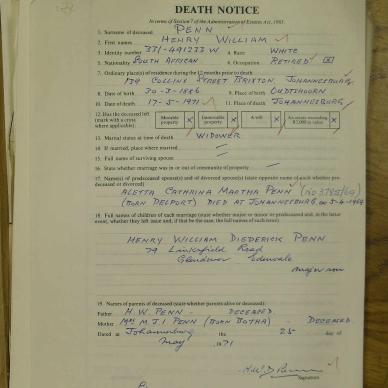 DEATH NOTICE
In terms of Section 7 of the Administration of Estates Act, 1965.
1. Surname of deceased PENN
2. First names HENRY WILLIAM
3. Identity number 331-491233 W 4. Race WHITE
5. Nationality SOUTH AFRICAN 6. Occupation RETIRED
7. Ordinary place(s) of residence during the 12 months prior to death
139 COLLINS STREET BRIXTON, JOHANNESBURG
8. Date of birth 30-3-1886 9. Place of birth OUDTSHOORN
10. Date of death 17-5-1971 11. Place of death JOHANNESBURG
12. Has the deceased left (mark with a cross where applicable) Movable property X Immovable property X A will X An estate exceeding in value X
13. Marital status at time of death WIDOWER
14. If married, place where married
15. Full name of surviving spouse
16. State whether marriage was in or out of community of property
17. Name(s) of predeceased spouse(s) and of divorced spouse(s) (state opposite name of each whether predeceased or divorced)
ALETTA CATHRINA MARTHA PENN
(BORN DELPORT) DIED AT JOHANNESBURG on 5-4-1969
18. Full names of children of each marriage (state whether major or minor or predeceased and, in the latter event, whether they left issue and, if that be the case, the full names of such issue)
HENRY WILLIAM DIEDERICK PENN
79 Linksfield Road
Glendower Edenvale
major son
19. Names of parents of deceased (state whether parents alive or deceased):
Father H.W. PENN - DECEASED
Mother MRS M.J.I PENN (BORN BOTHA) - DECEASED
Dated at Johannesburg the 25 day of
May 1971
Signature